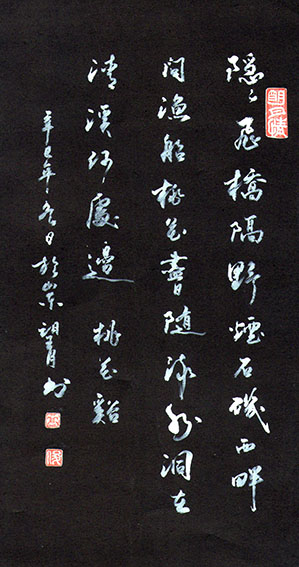 隱々飛橋隔野煙石磯西畔
問漁船桃花盡日隨流水洞在
清溪何處邊 桃花谿
辛巳年冬日於崇